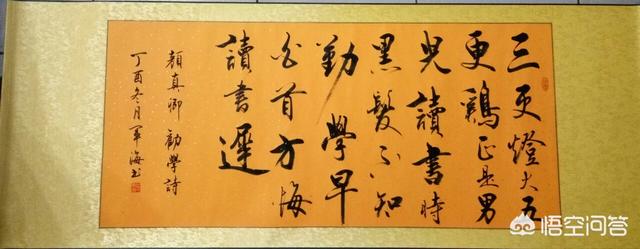 三更燈火五
更鷄正是男
兒讀書時
黑髮不知
勤學早
白首方悔
讀書遲
顏真卿 勸學詩
丁酉冬月 海书
悟空问答